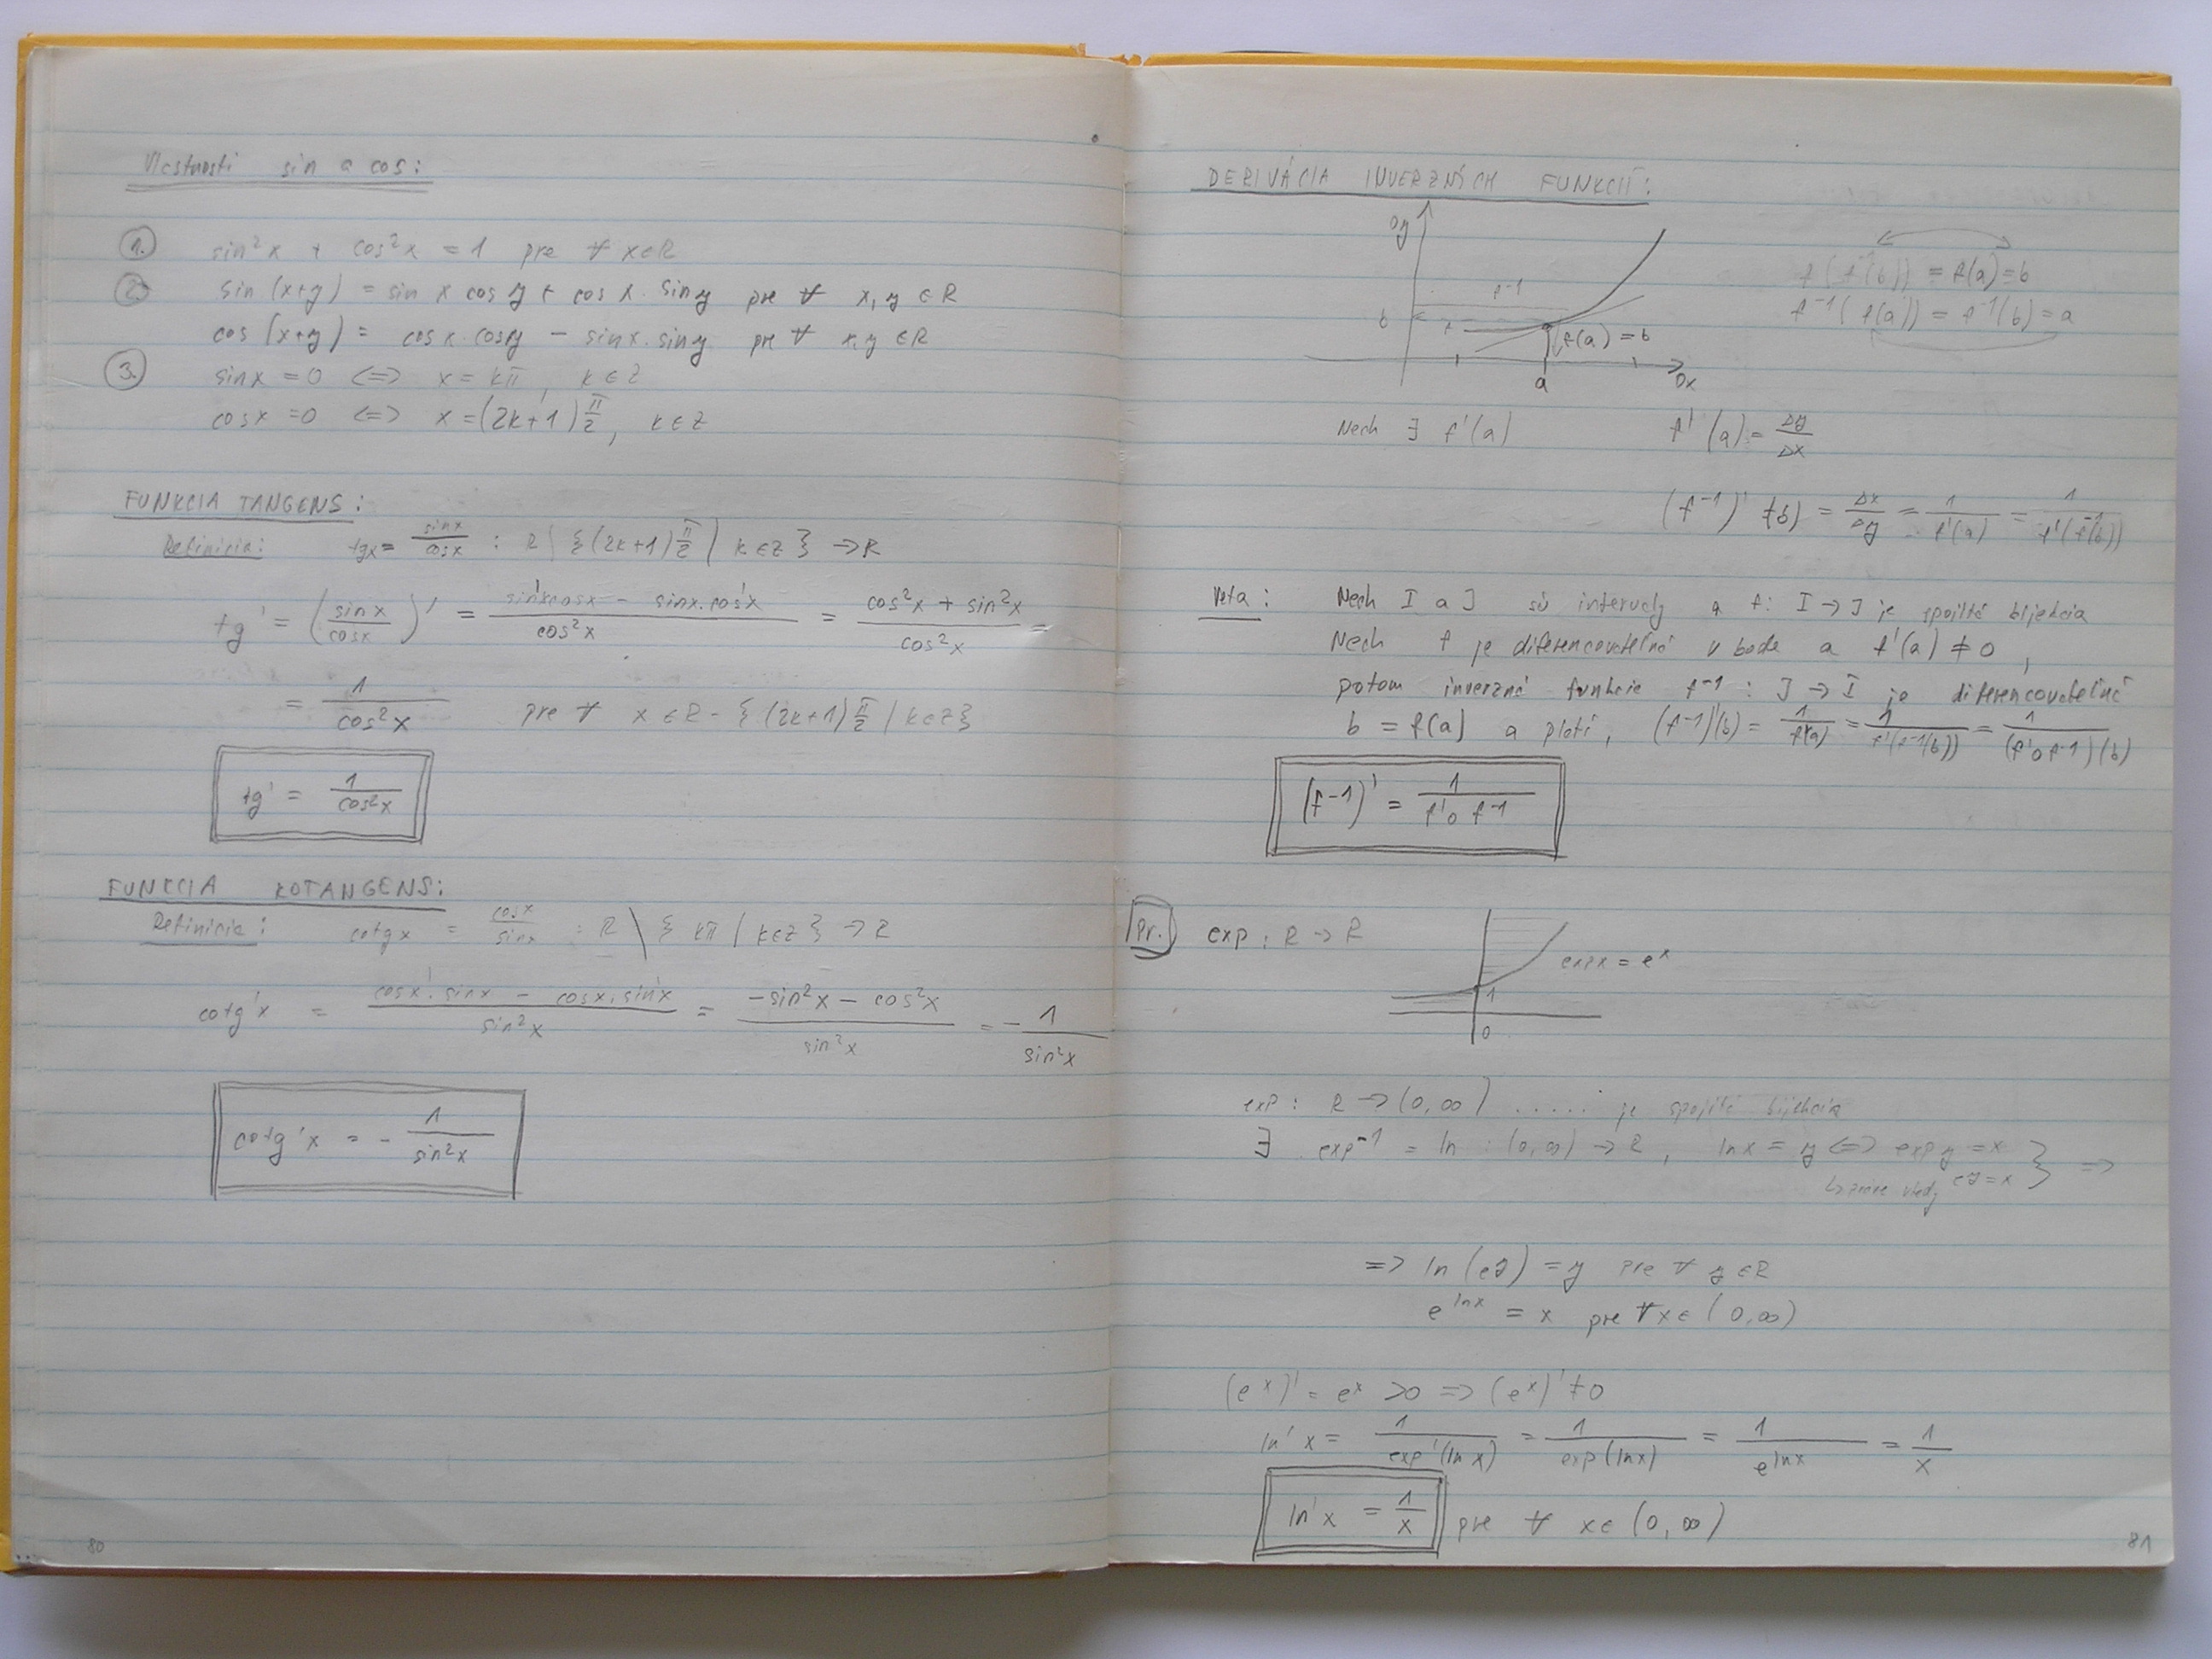 Vlastnosti sin a cos:
1. sin²x + cos²x = 1 pre ∀ x∈R
2. sin (x+y) = sin x cos y + cos x . sin y pre ∀ x, y ∈ R
cos (x+y) = cos x . cos y − sin x . sin y pre ∀ x, y ∈ R
3. sin x = 0 <=> x = kπ, k ∈ Z
cos x = 0 <=> x = (2k+1) π/2, k ∈ Z
FUNKCIA TANGENS:
Definícia: tg x = sin x / cos x : R \ {(2k+1) π/2 | k ∈ Z} → R
tg' = (sin x / cos x)' = (sin'x cos x − sin x . cos'x) / cos²x = (cos²x + sin²x) / cos²x =
= 1 / cos²x pre ∀ x ∈ R - {(2k+1) π/2 | k∈Z}
tg' = 1 / cos²x
FUNKCIA KOTANGENS:
Definícia: cotg x = cos x / sin x : R \ {kπ | k∈Z} → R
cotg'x = (cos'x . sin x − cos x . sin'x) / sin²x = (−sin²x − cos²x) / sin²x = − 1 / sin²x
cotg'x = − 1 / sin²x
80
DERIVÁCIA INVERZNÝCH FUNKCIÍ:
oy
f⁻¹
b
f
f(a) = b
a
ox
f(f⁻¹(b)) = f(a) = b
f⁻¹(f(a)) = f⁻¹(b) = a
Nech ∃ f'(a) f'(a) = Δy / Δx
(f⁻¹)'(b) = Δx / Δy = 1 / f'(a) = 1 / f'(f⁻¹(b))
Veta: Nech I a J sú intervaly a f: I → J je spojitá bijekcia
Nech f je diferencovateľná v bode a f'(a) ≠ 0,
potom inverzná funkcia f⁻¹ : J → I je diferencovateľná
b = f(a) a platí, (f⁻¹)'(b) = 1 / f'(a) = 1 / f'(f⁻¹(b)) = 1 / (f'o f⁻¹)(b)
(f⁻¹)' = 1 / f'o f⁻¹
Pr. exp : R → R
exp x = eˣ
1
0
exp : R → (0,∞) ..... je spojitá bijekcia
∃ exp⁻¹ = ln : (0,∞) → R, ln x = y <=> exp y = x } =>
vtedy eʸ = x
=> ln (eʸ) = y pre ∀ y ∈ R
e^(ln x) = x pre ∀ x ∈ (0,∞)
(eˣ)' = eˣ > 0 => (eˣ)' ≠ 0
ln'x = 1 / exp'(ln x) = 1 / exp(ln x) = 1 / e^(ln x) = 1 / x
ln'x = 1 / x pre ∀ x ∈ (0,∞)
81